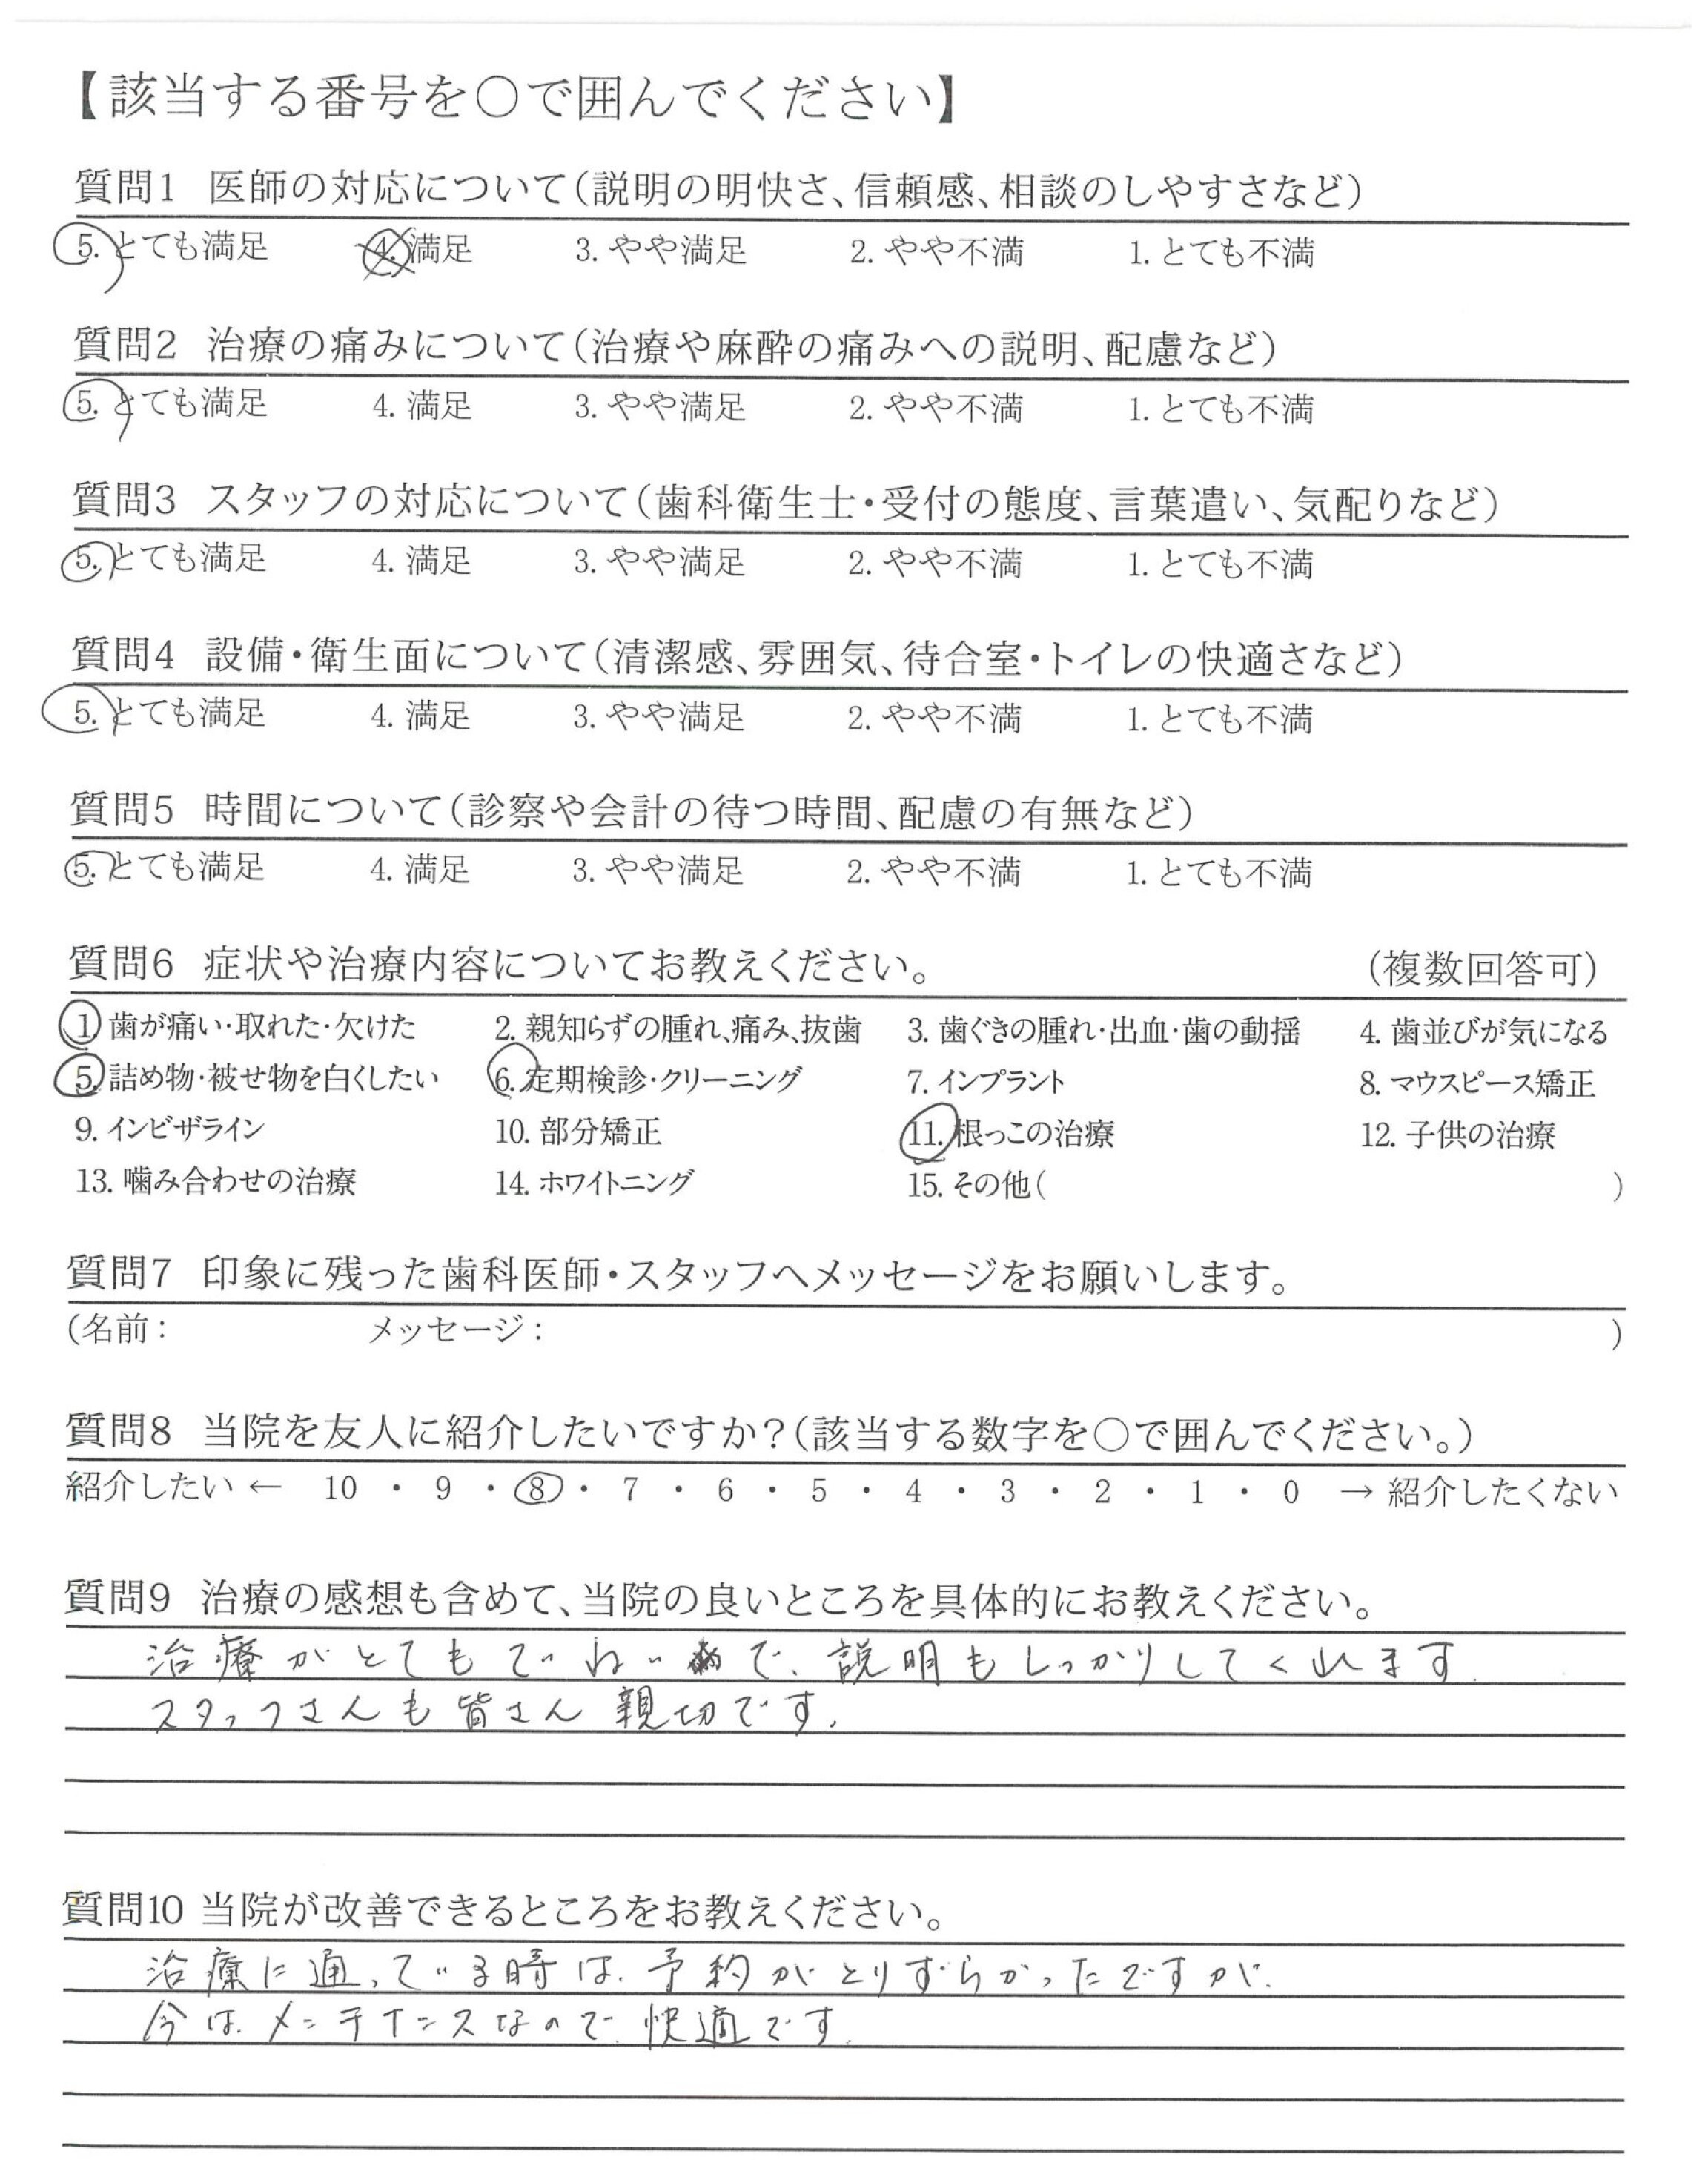 【該当する番号を○で囲んでください】
質問1 医師の対応について(説明の明快さ、信頼感、相談のしやすさなど)
5. とても満足 4. 満足 3. やや満足 2. やや不満 1. とても不満
質問2 治療の痛みについて(治療や麻酔の痛みへの説明、配慮など)
5. とても満足 4. 満足 3. やや満足 2. やや不満 1. とても不満
質問3 スタッフの対応について(歯科衛生士・受付の態度、言葉遣い、気配りなど)
5. とても満足 4. 満足 3. やや満足 2. やや不満 1. とても不満
質問4 設備・衛生面について(清潔感、雰囲気、待合室・トイレの快適さなど)
5. とても満足 4. 満足 3. やや満足 2. やや不満 1. とても不満
質問5 時間について(診察や会計の待つ時間、配慮の有無など)
5. とても満足 4. 満足 3. やや満足 2. やや不満 1. とても不満
質問6 症状や治療内容についてお教えください。 (複数回答可)
1. 歯が痛い・取れた・欠けた 2. 親知らずの腫れ、痛み、抜歯 3. 歯ぐきの腫れ・出血・歯の動揺 4. 歯並びが気になる
5. 詰め物・被せ物を白くしたい 6. 定期検診・クリーニング 7. インプラント 8. マウスピース矯正
9. インビザライン 10. 部分矯正 11. 根っこの治療 12. 子供の治療
13. 噛み合わせの治療 14. ホワイトニング 15. その他( )
質問7 印象に残った歯科医師・スタッフへメッセージをお願いします。
(名前: メッセージ: )
質問8 当院を友人に紹介したいですか?(該当する数字を○で囲んでください。)
紹介したい ← 10 ・ 9 ・ 8 ・ 7 ・ 6 ・ 5 ・ 4 ・ 3 ・ 2 ・ 1 ・ 0 → 紹介したくない
質問9 治療の感想も含めて、当院の良いところを具体的にお教えください。
治療がとてもていねいで、説明もしっかりしてくれます。
スタッフさんも皆さん親切です。
質問10 当院が改善できるところをお教えください。
治療に通っている時は、予約がとりずらかったですが、
今は、メンテナンスなので、快適です。